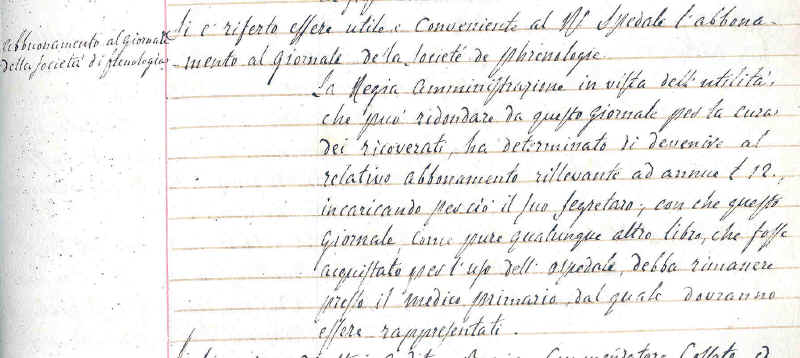 Abbuonamento al giornale
della società di frenologia
Si è riferto essere utile e conveniente al Rº Spedale l'abbona-
-mento al giornale de la societé de phrenologie.
La Regia Amministrazione in vista dell'utilità,
che può ridondare da questo giornale per la cura
dei ricoverati, ha determinato di devenire al
relativo abbonamento rillevante ad annue £ 12.,
incaricando perciò il suo segretaro, con che questo
giornale, come pure qualunque altro libro, che fosse
acquistato per l'uso dell'ospedale, debba rimanere
presso il medico primario, dal quale dovranno
essere rappresentati.